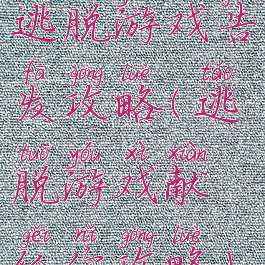 逃脱游戏告
fā gōng lüè táo
发攻略(逃
tuō yóu xì xiàn
脱游戏献
gěi nǐ gōng lüè
给你攻略)